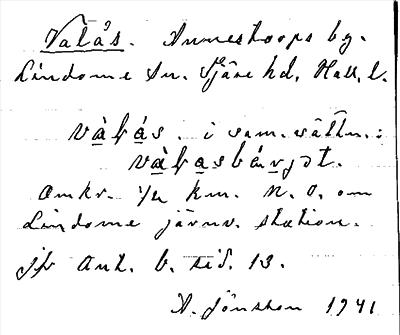 Valås. Annestorps by.
Lindome sn. Fjäre hd. Hall. l.
våłås. i sam.-sättn.:
våłasbærjət.
omkr. 1/2 km. N. O. om
Lindome järnv. station.
jfr Ant. b. sid. 13.
A. Jonsson 1941